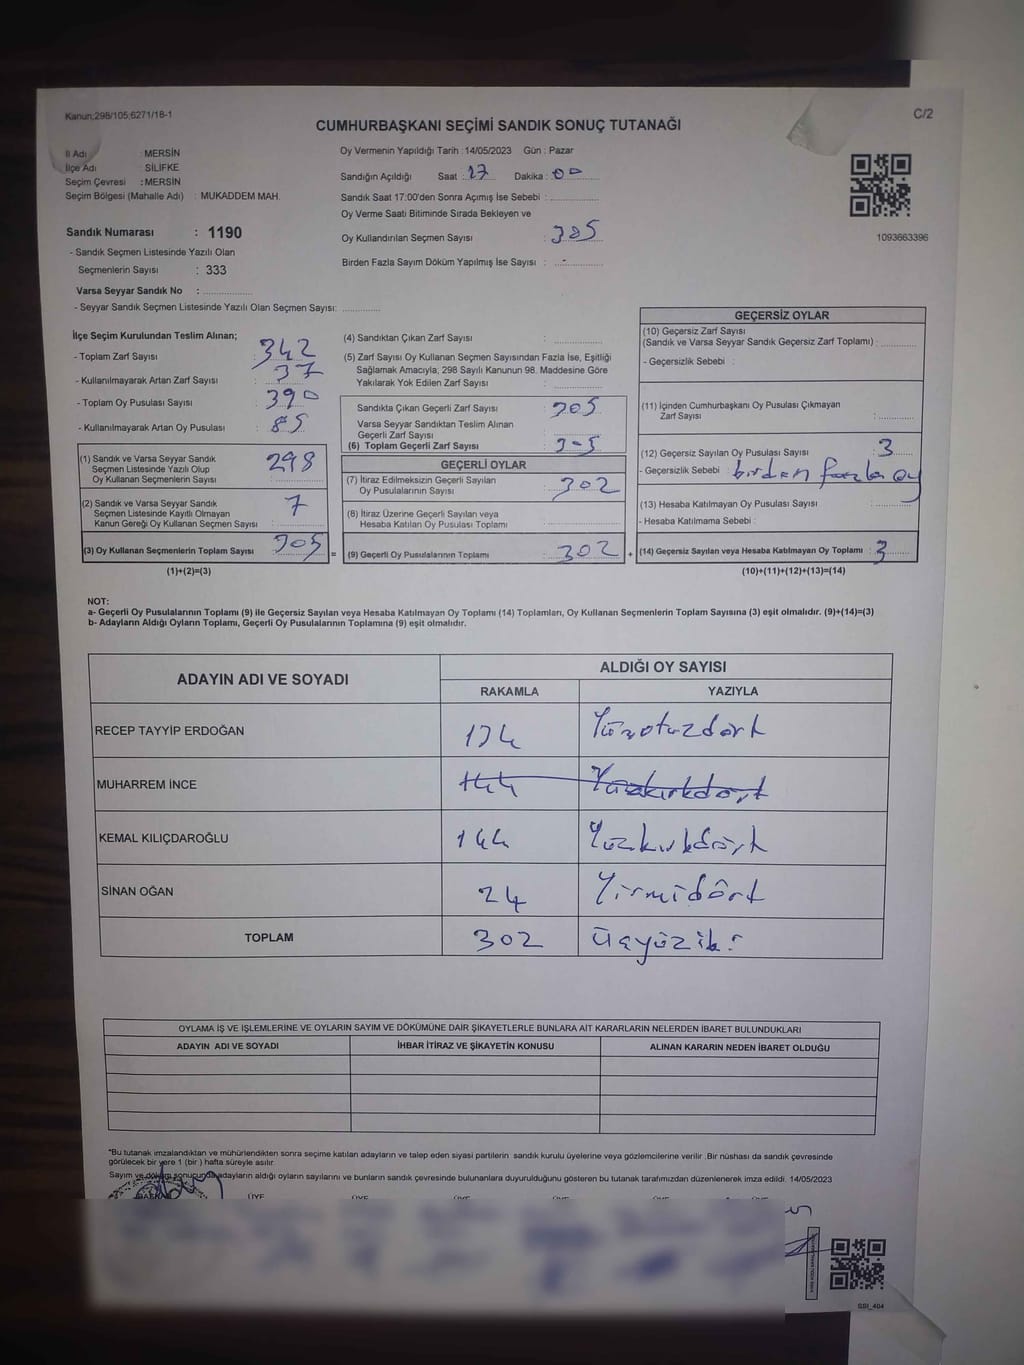 Kanun;298/105,6271/18-1
C/2
CUMHURBAŞKANI SEÇİMİ SANDIK SONUÇ TUTANAĞI
İl Adı : MERSİN
İlçe Adı SİLİFKE
Seçim Çevresi : MERSİN
Seçim Bölgesi (Mahalle Adı) : MUKADDEM MAH.
Sandık Numarası : 1190
- Sandık Seçmen Listesinde Yazılı Olan
Seçmenlerin Sayısı : 333
Varsa Seyyar Sandık No :
- Seyyar Sandık Seçmen Listesinde Yazılı Olan Seçmen Sayısı:
Oy Vermenin Yapıldığı Tarih : 14/05/2023 Gün : Pazar
Sandığın Açıldığı Saat : 17 Dakika : 00
Sandık Saat 17:00'den Sonra Açımış İse Sebebi :
Oy Verme Saati Bitiminde Sırada Bekleyen ve
Oy Kullandırılan Seçmen Sayısı : 305
Birden Fazla Sayım Döküm Yapılmış İse Sayısı : -
1093663396
İlçe Seçim Kurulundan Teslim Alınan;
- Toplam Zarf Sayısı : 342
- Kullanılmayarak Artan Zarf Sayısı : 37
- Toplam Oy Pusulası Sayısı : 390
- Kullanılmayarak Artan Oy Pusulası : 85
(1) Sandık ve Varsa Seyyar Sandık
Seçmen Listesinde Yazılı Olup
Oy Kullanan Seçmenlerin Sayısı : 298
(2) Sandık ve Varsa Seyyar Sandık
Seçmen Listesinde Kayıtlı Olmayan
Kanun Gereği Oy Kullanan Seçmen Sayısı : 7
(3) Oy Kullanan Seçmenlerin Toplam Sayısı : 305 =
(1)+(2)=(3)
(4) Sandıktan Çıkan Zarf Sayısı :
(5) Zarf Sayısı Oy Kullanan Seçmen Sayısından Fazla İse, Eşitliği
Sağlamak Amacıyla; 298 Sayılı Kanunun 98. Maddesine Göre
Yakılarak Yok Edilen Zarf Sayısı :
Sandıkta Çıkan Geçerli Zarf Sayısı : 305
Varsa Seyyar Sandıktan Teslim Alınan
Geçerli Zarf Sayısı :
(6) Toplam Geçerli Zarf Sayısı : 305
GEÇERLİ OYLAR
(7) İtiraz Edilmeksizin Geçerli Sayılan
Oy Pusulalarının Sayısı : 302
(8) İtiraz Üzerine Geçerli Sayılan veya
Hesaba Katılan Oy Pusulası Toplamı :
(9) Geçerli Oy Pusulalarının Toplamı : 302 +
GEÇERSİZ OYLAR
(10) Geçersiz Zarf Sayısı
(Sandık ve Varsa Seyyar Sandık Geçersiz Zarf Toplamı) :
- Geçersizlik Sebebi :
(11) İçinden Cumhurbaşkanı Oy Pusulası Çıkmayan
Zarf Sayısı :
(12) Geçersiz Sayılan Oy Pusulası Sayısı : 3
- Geçersizlik Sebebi : birden fazla oy
(13) Hesaba Katılmayan Oy Pusulası Sayısı :
- Hesaba Katılmama Sebebi :
(14) Geçersiz Sayılan veya Hesaba Katılmayan Oy Toplamı : 3
(10)+(11)+(12)+(13)=(14)
NOT:
a- Geçerli Oy Pusulalarının Toplamı (9) ile Geçersiz Sayılan veya Hesaba Katılmayan Oy Toplamı (14) Toplamları, Oy Kullanan Seçmenlerin Toplam Sayısına (3) eşit olmalıdır. (9)+(14)=(3)
b- Adayların Aldığı Oyların Toplamı, Geçerli Oy Pusulalarının Toplamına (9) eşit olmalıdır.
ADAYIN ADI VE SOYADI
ALDIĞI OY SAYISI
RAKAMLA YAZIYLA
RECEP TAYYİP ERDOĞAN 134 Yüzotuzdört
MUHARREM İNCE 144 Yüzkırkdört
KEMAL KILIÇDAROĞLU 144 Yüzkırkdört
SİNAN OĞAN 24 Yirmidört
TOPLAM 302 Üçyüziki
OYLAMA İŞ VE İŞLEMLERİNE VE OYLARIN SAYIM VE DÖKÜMÜNE DAİR ŞİKAYETLERLE BUNLARA AİT KARARLARIN NELERDEN İBARET BULUNDUKLARI
ADAYIN ADI VE SOYADI İHBAR İTİRAZ VE ŞİKAYETİN KONUSU ALINAN KARARIN NEDEN İBARET OLDUĞU
*Bu tutanak imzalandıktan ve mühürlendikten sonra seçime katılan adayların ve talep eden siyasi partilerin sandık kurulu üyelerine veya gözlemcilerine verilir .Bir nüshası da sandık çevresinde
görülecek bir yere 1 (bir ) hafta süreyle asılır.
Sayım ve döküm sonucunda adayların aldığı oyların sayılarını ve bunların sandık çevresinde bulunanlara duyurulduğunu gösteren bu tutanak tarafımızdan düzenlenerek imza edildi. 14/05/2023
BAŞKAN ÜYE ÜYE ÜYE ÜYE ÜYE ÜYE
SSI_404